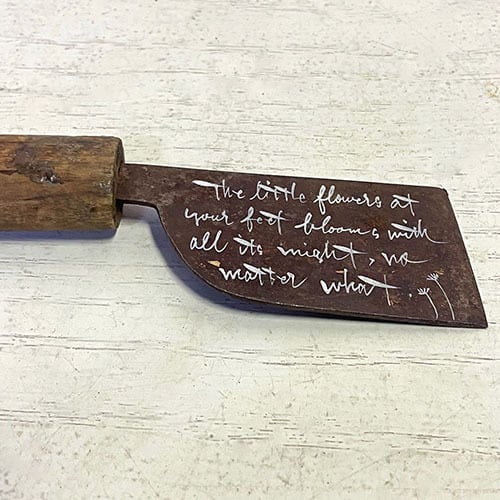 The little flowers at
your feet blooms with
all its might, no
matter what.